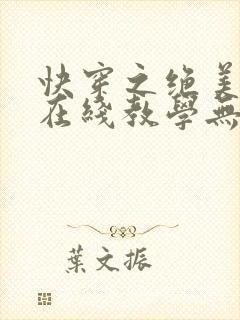 快穿之绝美
在线教学無
葉文振